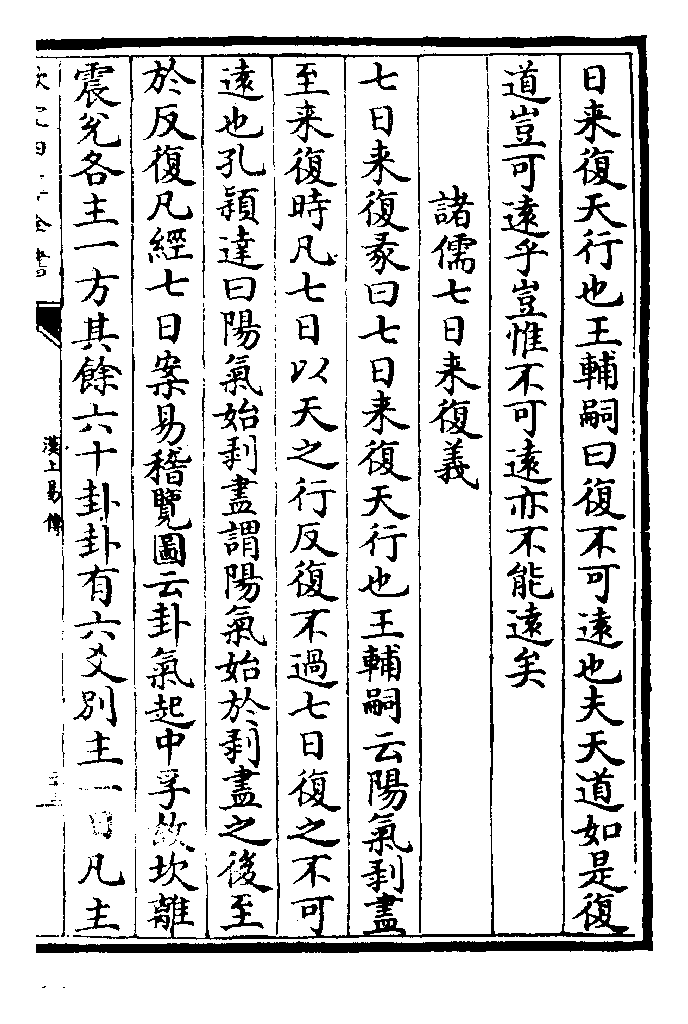 日来復天行也王輔嗣曰復不可逺也夫天道如是復
道豈可逺乎豈惟不可逺亦不能逺矣
諸儒七日来復義
七日来復彖曰七日来復天行也王輔嗣云陽氣剥盡
至来復時凡七日以天之行反復不過七日復之不可
逺也孔穎達曰陽氣始剥盡謂陽氣始於剥盡之後至
於反復凡經七日案易稽覽圖云卦氣起中孚故坎離
震兊各主一方其餘六十卦卦有六爻别主一日凡主
漢上易傳